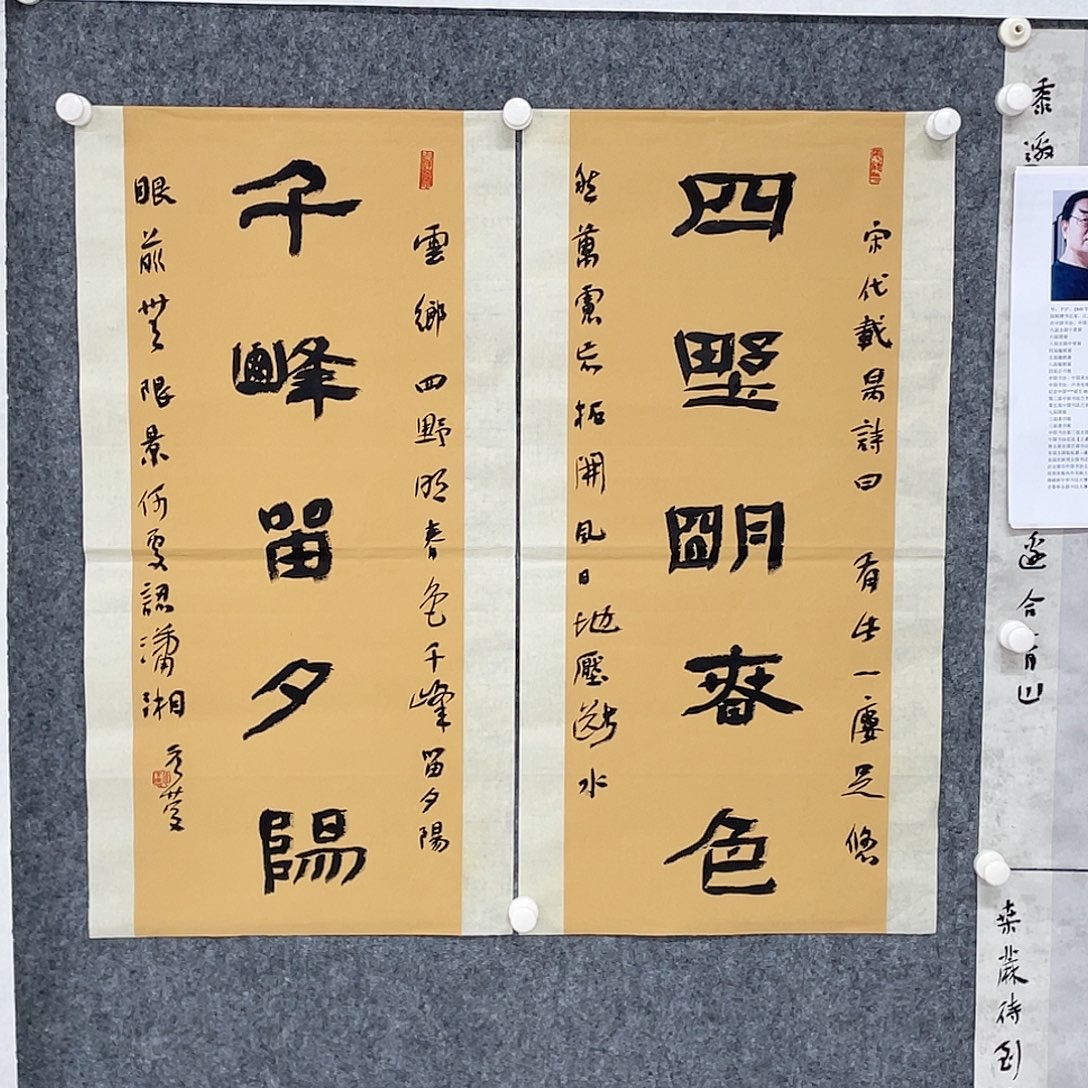 黍邀
邊合青山
桑麻待到
宋代戴昺詩曰 有此一廛足 悠
四野明春色
然萬慮忘拓開風日地壓斷水
雲鄉四野明春色千峰留夕陽
千峰留夕陽
眼前無限景何更認瀟湘